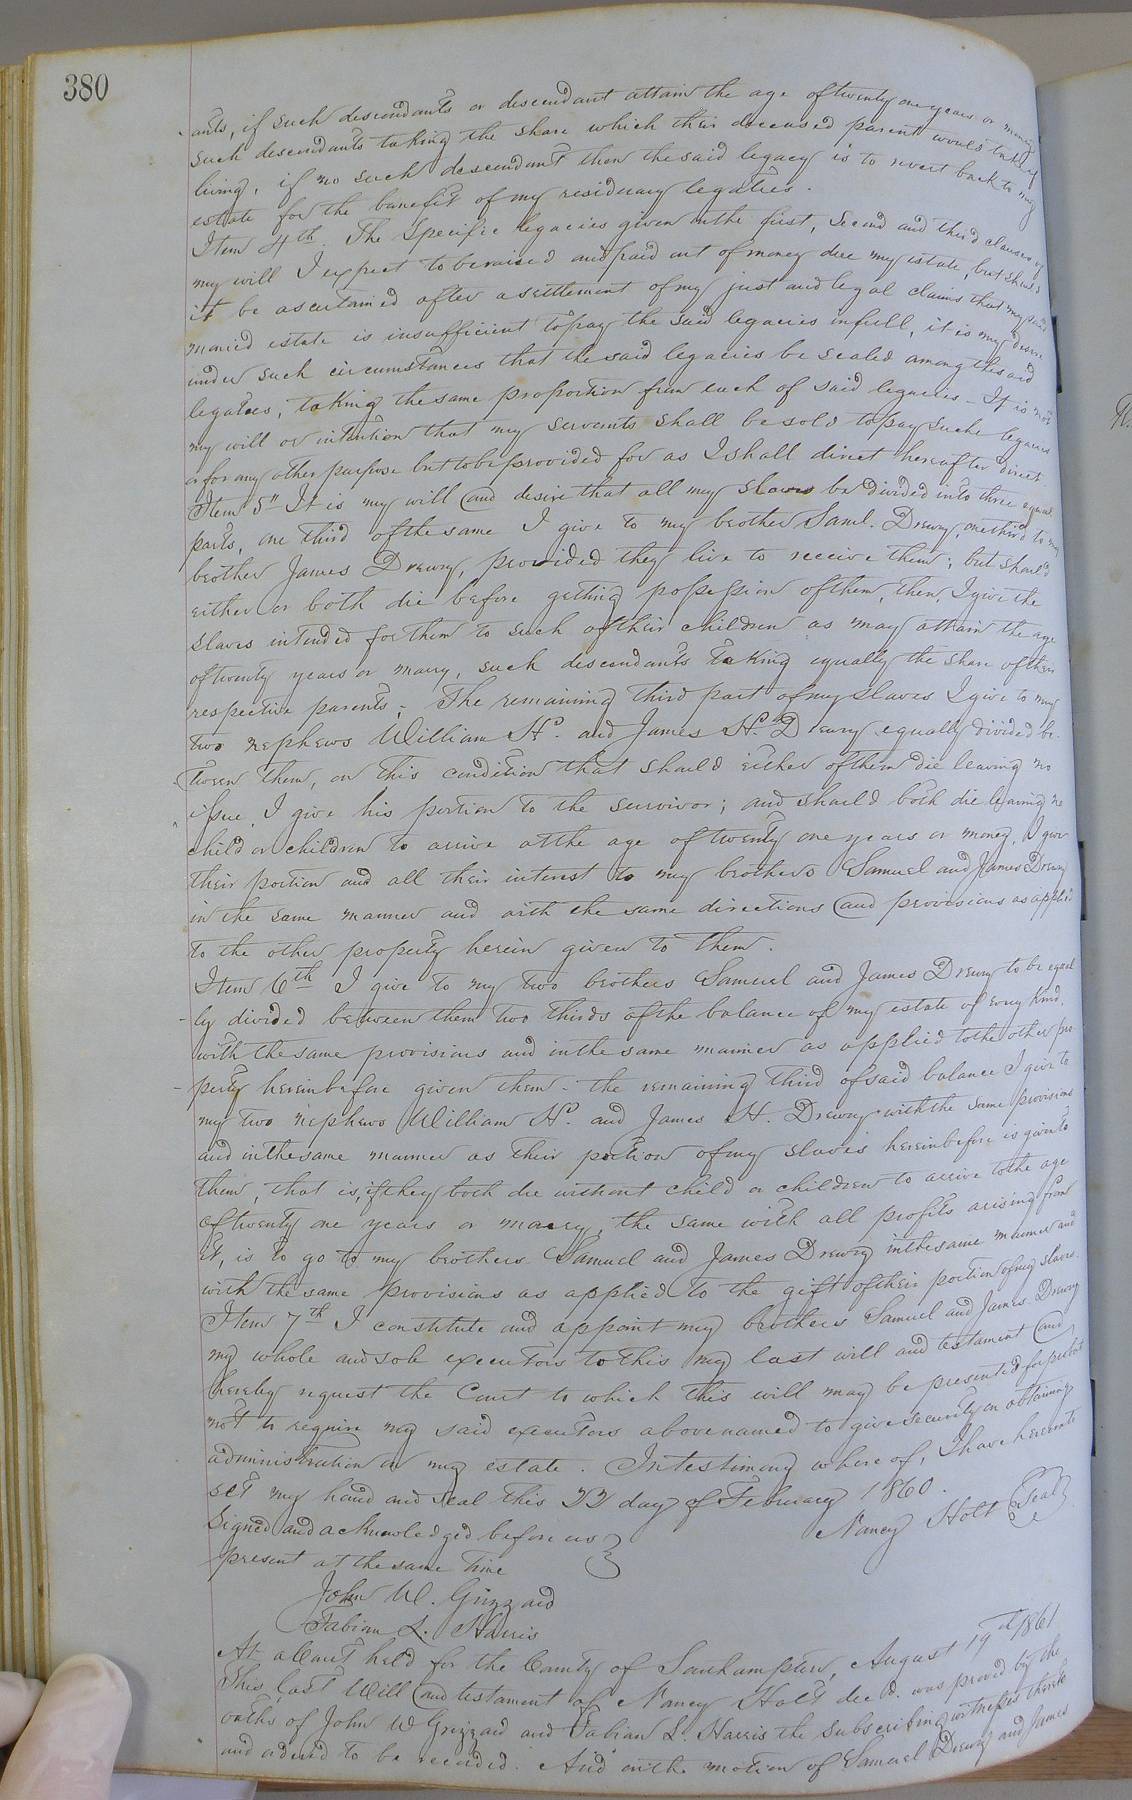 380
ants, if such descendants or descendant attain the age of twenty one years or marry
such descendants taking the share which their deceased parent would take if
living, if no such descendant then the said legacy is to revert back to my
estate for the benefit of my residuary legatees.
Item 4th. The Specific legacies given in the first, Second and third clauses of
my will I expect to be raised and paid out of money due my estate, but should
it be ascertained after a settlement of my just and legal claims that my said
monied estate is insufficient to pay the said legacies in full, it is my desire
under such circumstances that the said legacies be scaled among the said
legatees, taking the same proportion from each of said legacies - It is not
my will or intention that my servants shall be sold to pay such legacies
or for any other purpose but to be provided for as I shall direct hereafter direct
Item 5" It is my will and desire that all my slaves be divided into three equal
parts, one third of the same I give to my brother Saml. Drewry, one third to my
brother James Drewry, provided they live to receive them; but should
either or both die before getting possession of them, then, I give the
slaves intended for them to such of their children as may attain the age
of twenty years or marry, such descendants taking equally the share of their
respective parents; The remaining third part of my slaves I give to my
two nephews William H. and James H. Drewry equally divided be-
tween them, on this condition that should either of them die leaving no
issue, I give his portion to the survivor; and should both die leaving no
child or children to arrive at the age of twenty one years or marry, I give
their portion and all their interest to my brothers Samuel and James Drewry
in the same manner and with the same directions and provisions as applied
to the other property herein given to them.
Item 6th I give to my two brothers Samuel and James Drewry to be equal
ly divided between them two thirds of the balance of my estate of every kind,
with the same provisions and in the same manner as applied to the other pro
perty hereinbefore given them - the remaining third of said balance I give to
my two nephews William H. and James H. Drewry with the same provisions
and in the same manner as their portion of my slaves hereinbefore is given to
them, that is, if they both die without child or children to arrive to the age
of twenty one years or marry, the same with all profits arising from
it, is to go to my brothers Samuel and James Drewry in the same manner and
with the same provisions as applied to the gift of their portion of my slaves.
Item 7th I constitute and appoint my brothers Samuel and James Drewry
my whole and sole executors to this my last will and testament and
hereby request the Court to which this will may be presented for probat
not to require my said executors above named to give security on obtaining
administration on my estate. In testimony where of, I have hereunto
set my hand and seal this 22 day of February 1860.
Signed and acknowledged before us } Nancy Holt {Seal}
present at the same time
John W. Grizzard
Fabian L. Harris
At a Court held for the County of Southampton, August 19th 1861
This last Will and testament of Nancy Holt dec'd. was proved by the
oaths of John W Grizzard and Fabian L. Harris the subscribing witnesses thereto
and ordered to be recorded. And on the motion of Samuel Drewry and James